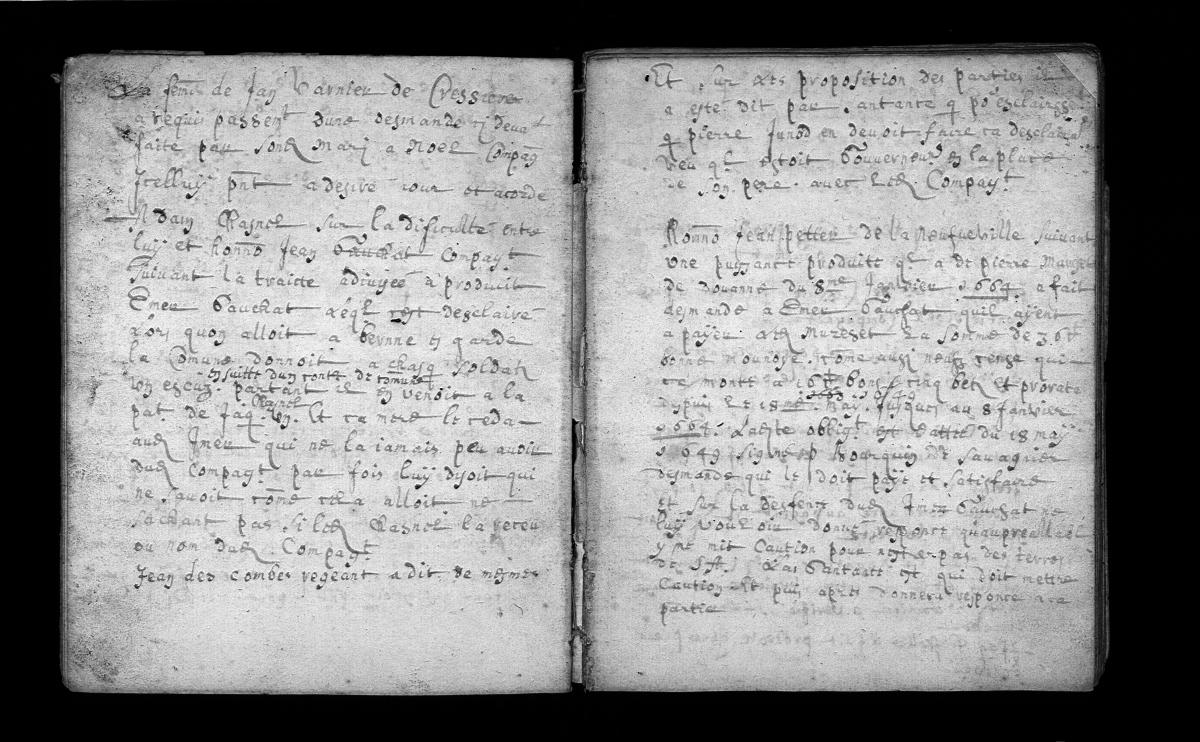 La fem̃e de Jaq Varnier de Cressier
a requis passem^t dune desmande cy deva^t
faite par sond Marj a Noel Compag
Jcelluy pñt a desiré jour et acordé
Adam Rasnel sur la dificulté entre
luy et honnõ Jean Gauchat Compay^t
suivant la traicte adivisée a produit
Emer Gauchat leql est desclairé
lors quon alloit a berne en garde
la Comune donnoit a chasq soldatz
en suitte dun conte de comune
ung escuz. partant il en venoit a la
Rasnel
pat de Jaq. Et ca mere le ceda
aud Jmer qui ne la iamais peu avoir
dud Compagt par fois luy disoit qui
ne savoit cõme cela alloit ne
sachant pas si led Rasnel la receu
ou nom dud. Compagt
Jean des Combes regeant a dit de mesmes
Et sur les proposition des parties il
a esté dit par santance q po^r esclaircy
q pierre Junod en devoit faire ca desclaira^o
veu ql estoit Gouverneur en la place
de son pere. avec led Compay^t.
Honnõ Jean petter de la Neufveville suivant
une puissance produitte ql a de pierre Mureset
de douanne du 8^me Janvier 1664 a fait
desmande a Emer Gauchat. quil ayent
a payer aud Mureset La somme de 36 tt
bonne Monoye. cõme aussi neufz cense qui
ce monte a 16 tt bons cinq betz et prorate
1663
depuis le 18^me May. Jusques au 8 Janvier
1664. Ladite oblig^t est dattée du 18 may
1649 signée p Bourguin de Savagnier
desmande qui le doit payé et satisfaire
et sur la desfence dud Jmer Gauchat ne
luy vouloir donné responce quauprealabl
y ne mit Caution pour nester pas des terres
de SA. Las Santance est qui doit mettre
Caution Et puis apres donnera responce a ca
partie